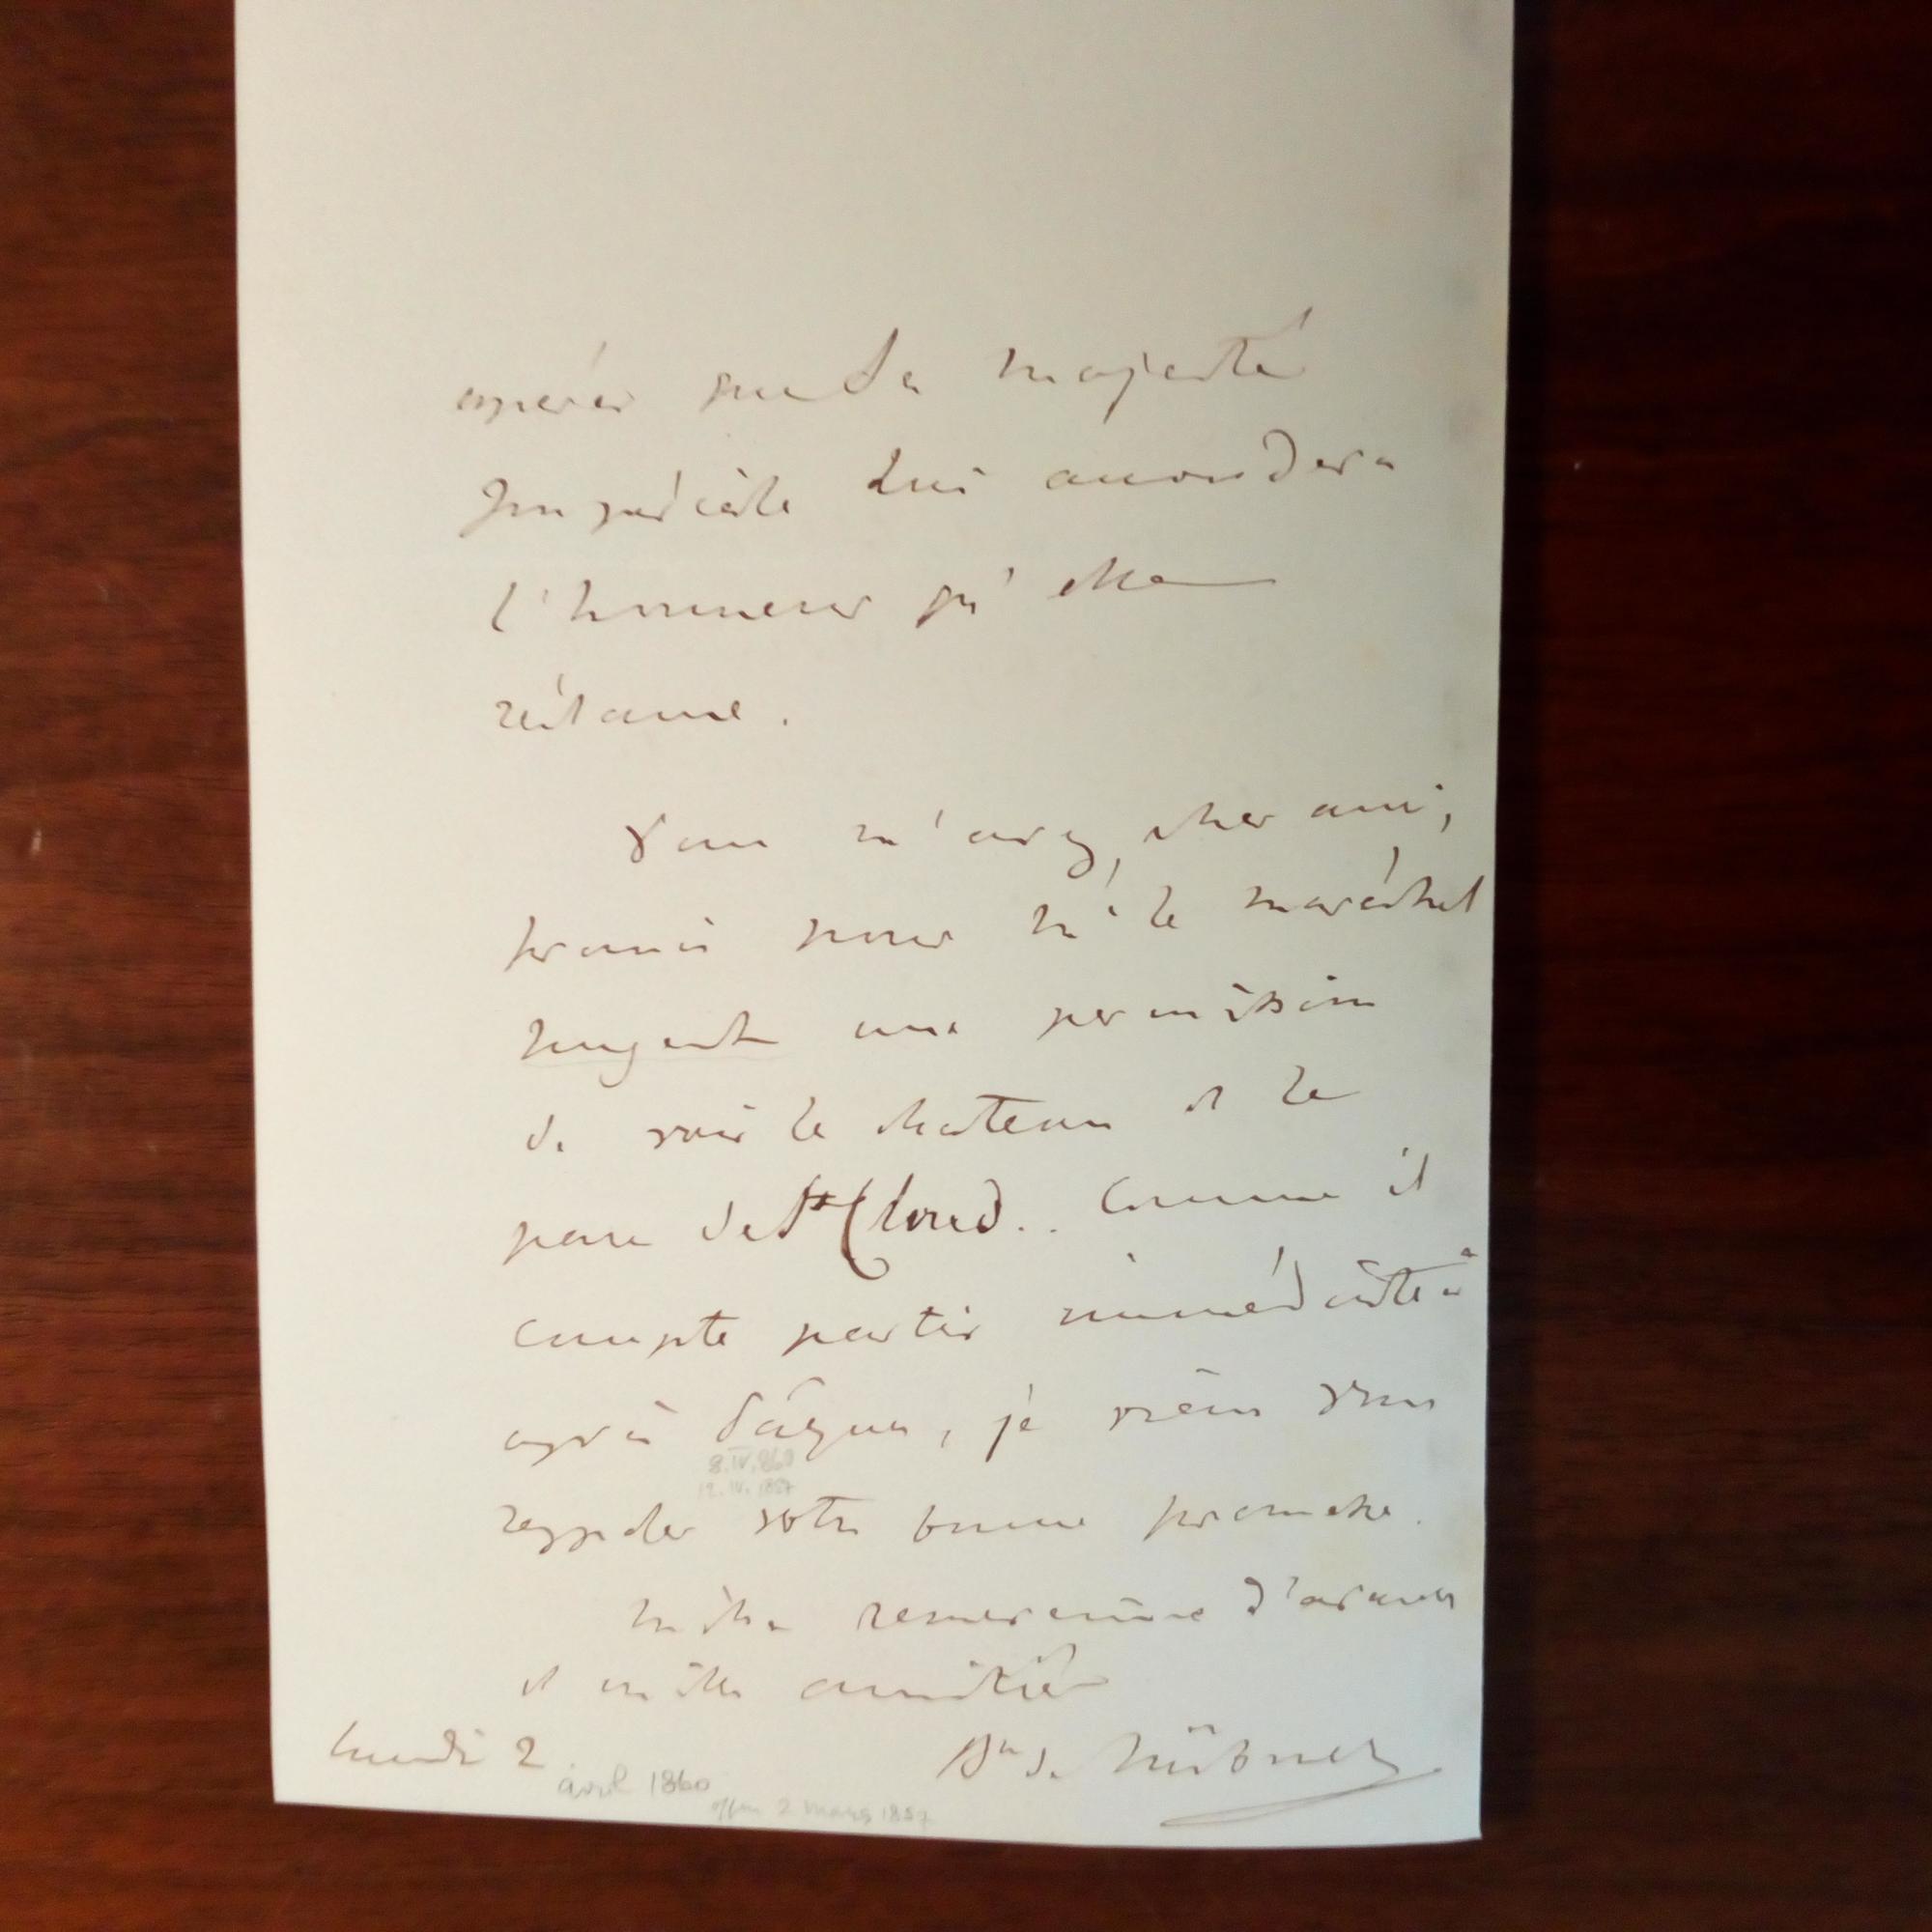 espérer que Sa Majesté
Impériale lui accordera
l'honneur qu'elle
réclame.
Vous m'avez, cher ami,
promis pour M. le maréchal
Nugent une permission
de voir le chateau et le
parc de St Cloud.. Comme il
compte partir immédiatet
après Pâques, je viens vous
8.IV.860
12.IV.1857
rappeler votre bonne promesse.
Mille d'avance
et mille amitiés
Lundi 2 Bn de Hübner
avril 1860
2 mars 1857